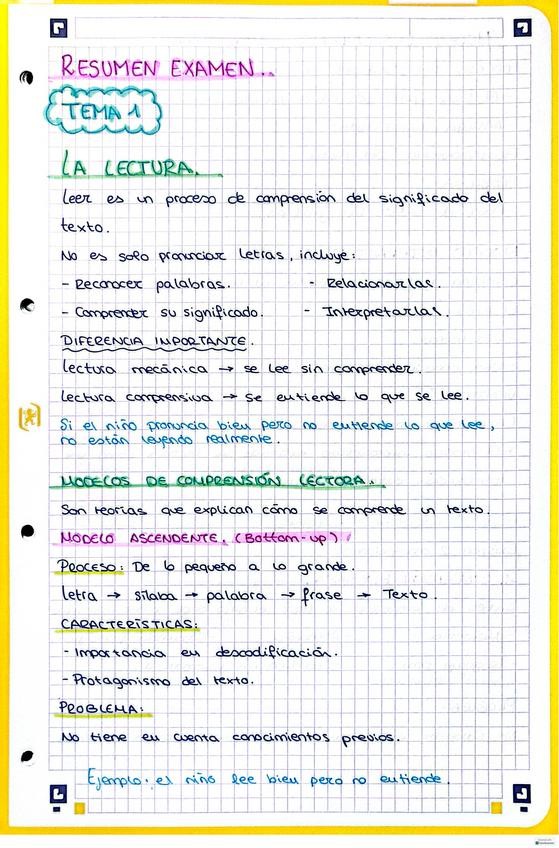 RESUMEN EXAMEN..
TEMA 1
LA LECTURA.
Leer es un proceso de comprensión del significado del
texto.
No es solo pronunciar letras, incluye:
- Reconocer palabras. - Relacionarlas.
- Comprender su significado. - Interpretarlas.
DIFERENCIA IMPORTANTE.
Lectura mecánica → se lee sin comprender.
Lectura comprensiva → Se entiende lo que se lee.
Si el niño pronuncia bien pero no entiende lo que lee,
no están leyendo realmente.
MODELOS DE COMPRENSIÓN LECTORA.
Son teorías que explican cómo se comprende un texto.
MODELO ASCENDENTE. (Bottom-up)
PROCESO: De lo pequeño a lo grande.
letra → sílaba → palabra → frase → Texto.
CARACTERÍSTICAS:
- Importancia en descodificación.
- Protagonismo del texto.
PROBLEMA:
No tiene en cuenta conocimientos previos.
Ejemplo: el niño lee bien pero no entiende.